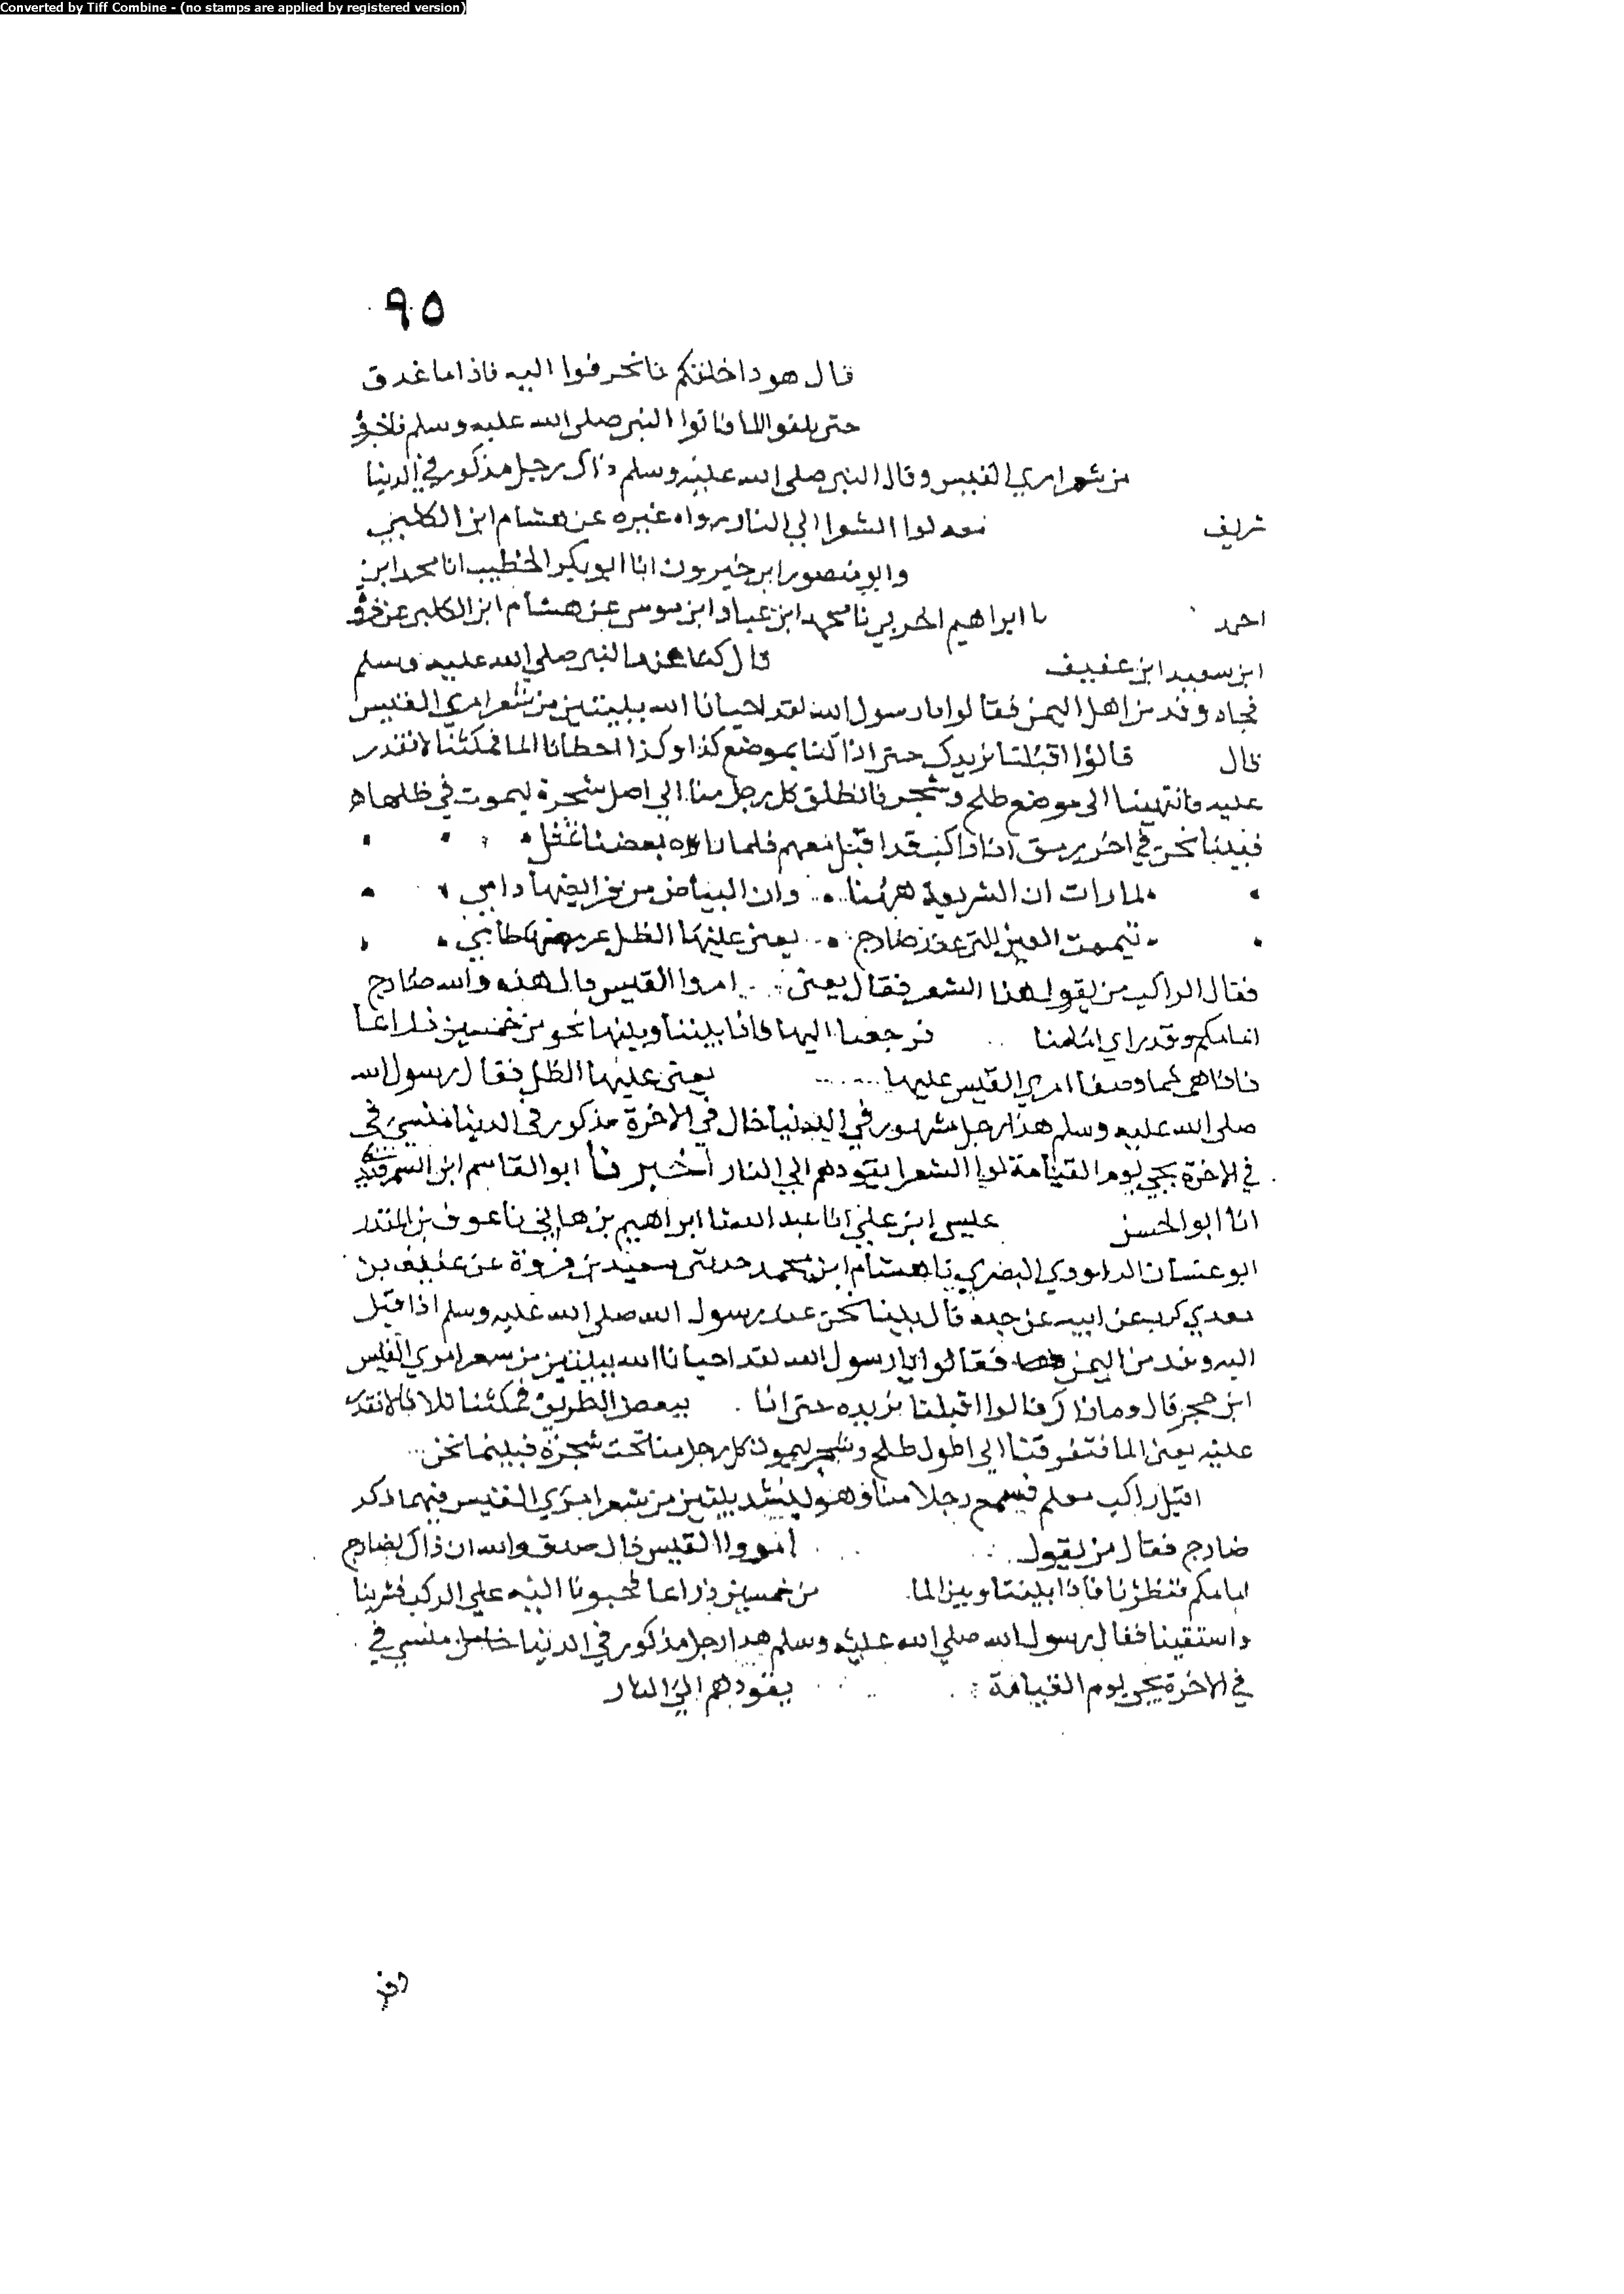 Converted by Tiff Combine - (no stamps are applied by registered version)
٩٥
قال هو ذا خلفكم فانحرفوا اليه فاذا ما غدق
حتى بلغوا الما فاتوا النبي صلى الله عليه وسلم
من شعر امري القيس وقال النبي صلى الله عليه وسلم ذاك رجل مذكور في الدنيا
شريف معه لوا الشعرا الي النار رواه غيره عن هشام ابن الكلبي
وابو منصور ابن خيرون انا ابو بكر الخطيب انا محمد ابن
احمد نا ابراهيم الحربي نا محمد ابن عباد ابن موسى عن هشام ابن الكلبي عن فروة
ابن سعيد ابن عفيف قال كنا عند النبي صلى الله عليه وسلم
فجاه وفد من اهل اليمن فقالوا يا رسول الله لقد احيانا الله ببيتين من شعر امري القيس
قال قالوا اقبلنا نريدك حتى اذا كنا بموضع كذا وكذا اخطانا الما فمكثنا لا نقدر
عليه فانتهينا الى موضع طلح وشجر فانطلق كل رجل منا الي اصل شجرة ليموت في ظلها
فبينا نحن في اخر رمق اذا راكب قد اقبل فلما راه بعضنا
لما رات ان الشريعة همنا وان البياض من فرايضها دامي
تيممت العين التي عند ضارج يعني عليها الظل عرمضها طامي
فقال الراكب من يقول هذا الشعر فقال يعني امروا القيس قال هذه والله ضارج
امامكم وقد راي فرجعنا اليها فاذا بيننا وبينها نحو من خمسين ذراعا
فاذا هي كما وصفا امري القيس عليها يعني عليها الظل فقال رسول الله
صلى الله عليه وسلم هذا رجل مشهور في الدنيا خال في الاخرة مذكور في الدنيا منسي في
في الاخرة يجي يوم القيامة لوا الشعرا يقودهم الي النار أخبرنا ابو القاسم ابن السمرقندي
انا ابو الحسن عليس ابن علي انا عبد الله نا ابراهيم بن هاني نا عوف بن المنذر
ابو غسان البصري نا هشام ابن محمد حدثني سعيد بن فروة عن عفيف بن
معدي كرب عن ابيه عن جده قال بينا نحن عند رسول الله صلى الله عليه وسلم اذ اقبل
اليه وفد من اليمن فقالوا يا رسول الله لقد احيانا الله ببيتين من شعر امري القيس
ابن حجر قال وما ذاك قالوا اقبلنا نريده حتى اذا ببعض الطريق فمكثنا ثلاثا لا نقدر
عليه يعني الما فتفرقنا الي اصول طلح وشجر ليموت كل رجل منا تحت شجرة فبينما نحن
اقبل راكب معلم فسمع رجلا منا وهو ينشد بيتين من شعر امري القيس فيهما ذكر
ضارج فقال من يقول امروا القيس قال صدق والله ان ذاك لضارج
امامكم فنظرنا فاذا بيننا وبين الما من خمسين ذراعا فحبونا اليه علي الركب فشربنا
واستقينا فقال رسول الله صلي الله عليه وسلم هذا رجل مذكور في الدنيا خامل منسي في
في الاخرة يجي يوم القيامة يقودهم الي النار